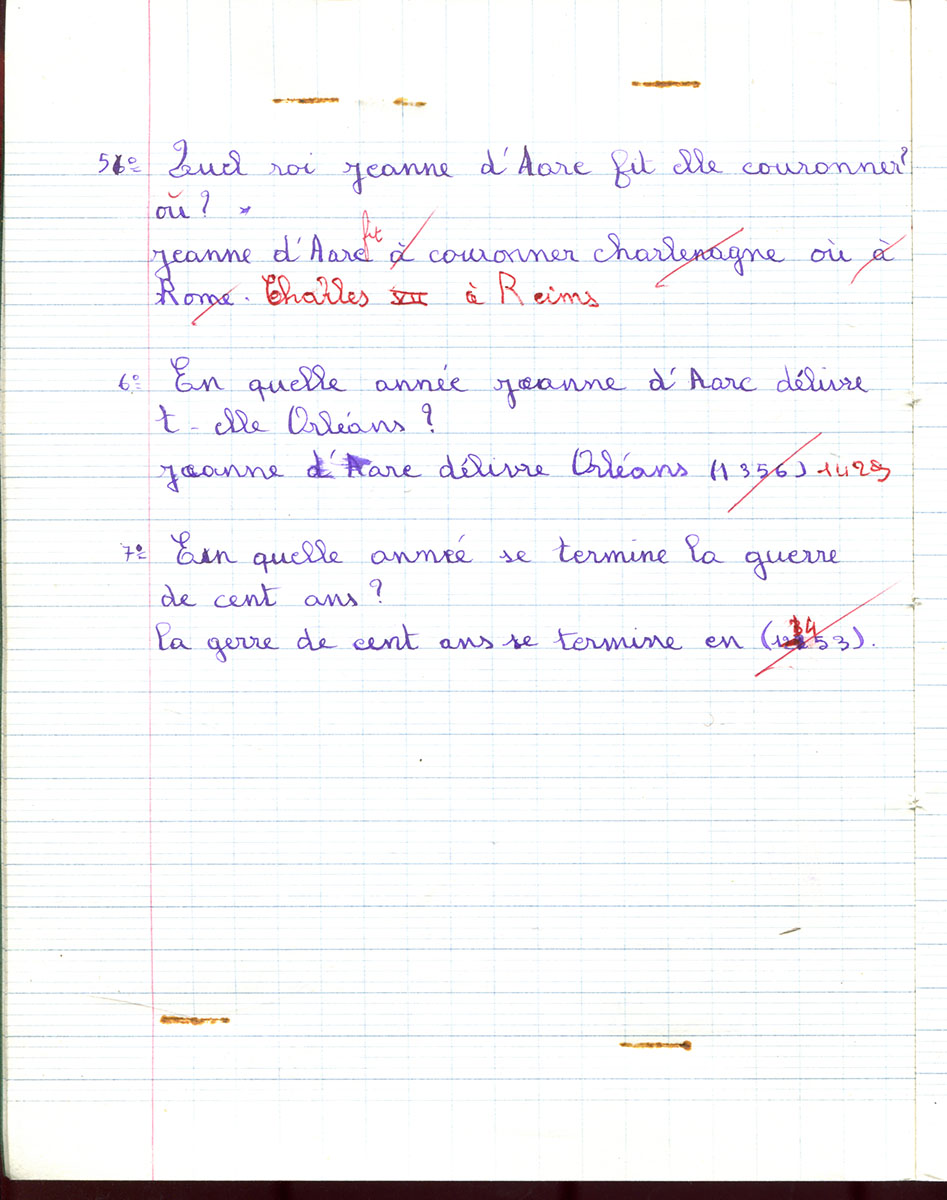 5º Quel roi jeanne d'Aarc fit elle couronner?
où ?
jeanne d'Aarc fit à couronner charlemagne où à
Rome. Charles VII à Reims
6º En quelle année jeanne d'Aarc délivre
t-elle Orléans ?
jeanne d'Aarc délivre Orléans (1356) 1429
7º En quelle année se termine la guerre
de cent ans ?
la gerre de cent ans se termine en (53).